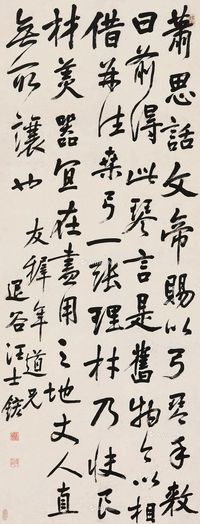 蕭思話文帝賜以弓琴手敕
曰前得此琴言是舊物今以相
借并往桑弓一張理材乃快良
材美器宜在盡用之地丈人直
無所讓也
友穉年道兄
退谷汪士鋐